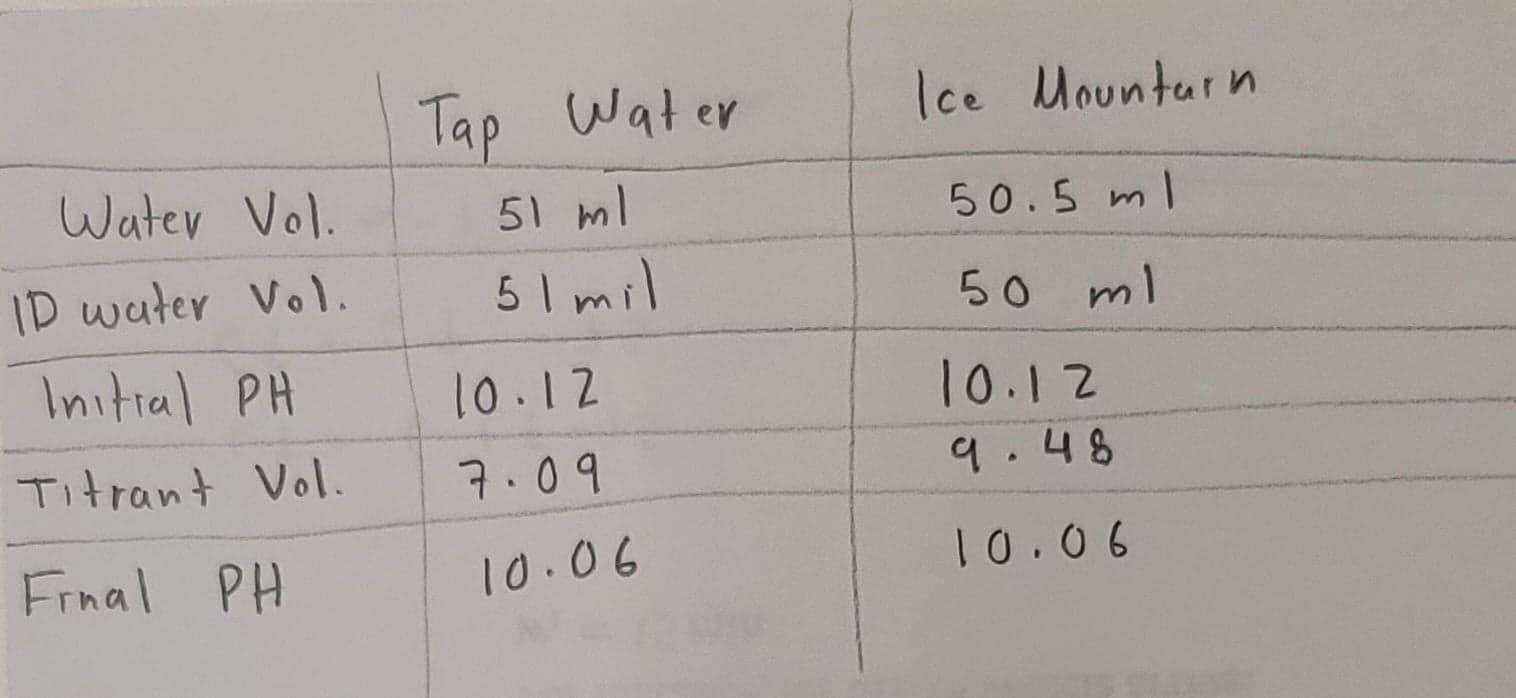 Tap Water Ice Mountain
Water Vol. 51 ml 50.5 ml
ID water Vol. 51 mil 50 ml
Initial PH 10.12 10.12
Titrant Vol. 7.09 9.48
Final PH 10.06 10.06